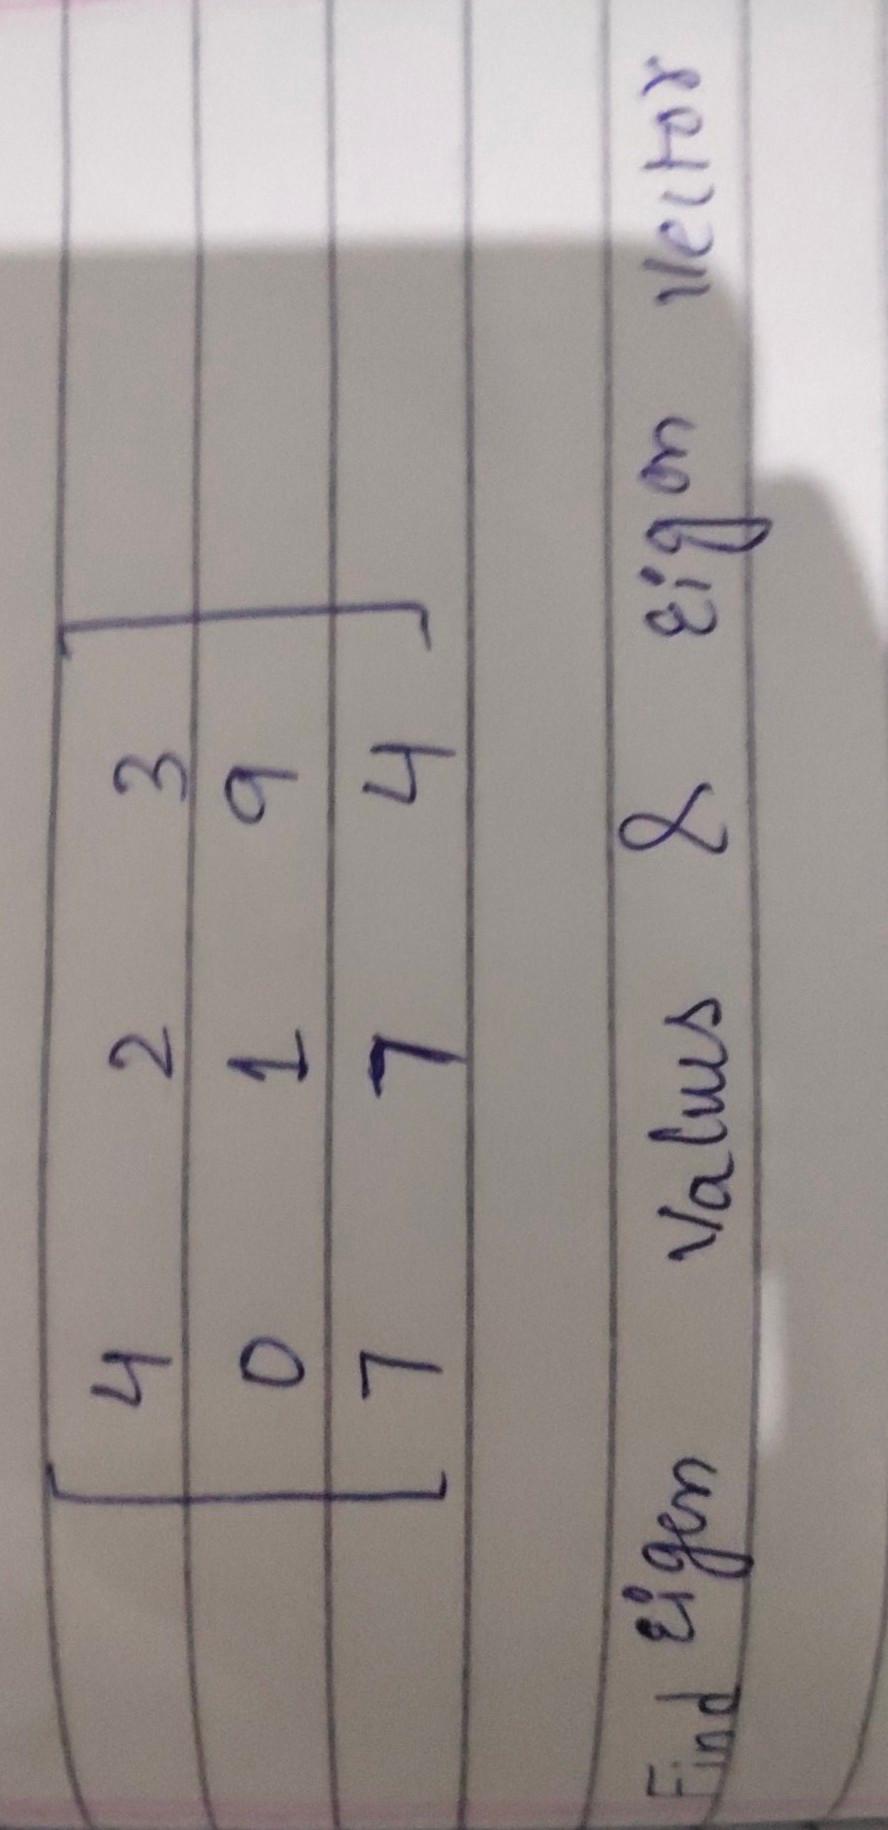 [ 4 2 3
0 1 9
7 7 4 ]
Find Eigen Values & Eigen Vector